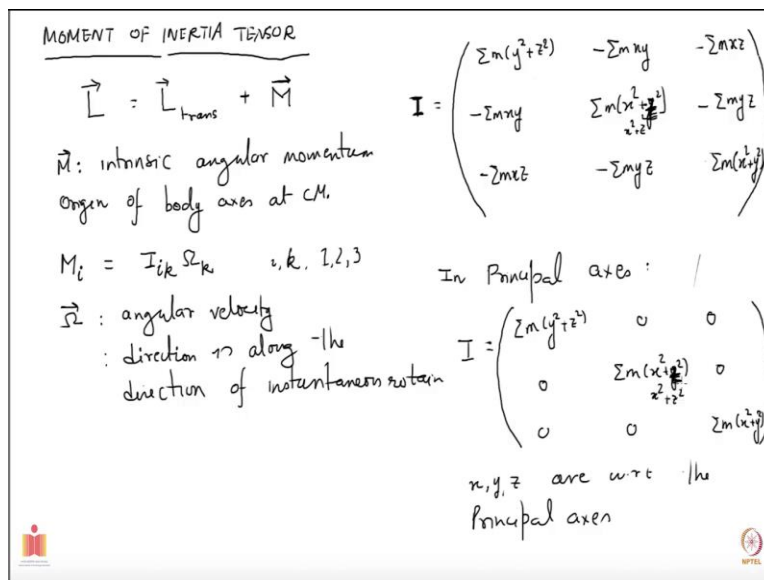 MOMENT OF INERTIA TENSOR
L⃗ = L⃗trans + M⃗
M⃗: intrinsic angular momentum
origin of body axes at CM.
Mᵢ = Iᵢₖ Ωₖ i, k, 1,2,3
Ω⃗ : angular velocity
: direction is along the
direction of instantaneous rotain
I =
Σm(y²+z²) -Σmxy -Σmxz
-Σmxy Σm(x²+z²) -Σmyz
x²+z²
-Σmxz -Σmyz Σm(x²+y²)
In Principal axes :
I =
Σm(y²+z²) 0 0
0 Σm(x²+z²) 0
x²+z²
0 0 Σm(x²+y²)
x,y,z are w.r.t the
Principal axes
NPTEL